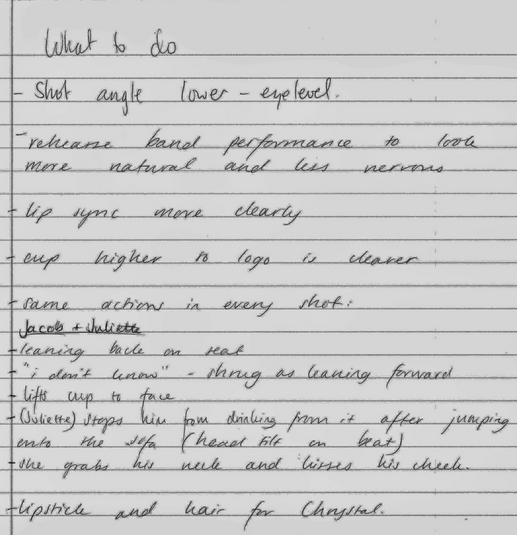 What to do
- Shot angle lower - eyelevel.
- rehearse band performance to look
more natural and less nervous
- lip sync more clearly
- cup higher so logo is clearer
- same actions in every shot:
Jacob + Juliette
- leaning back on seat
- "i don't know" - shrug as leaning forward
- lifts cup to face
- (Juliette) stops him from drinking from it after jumping
onto the sofa (head tilt on beat)
- she grabs his neck and kisses his cheek.
- lipstick and hair for Chrystal.